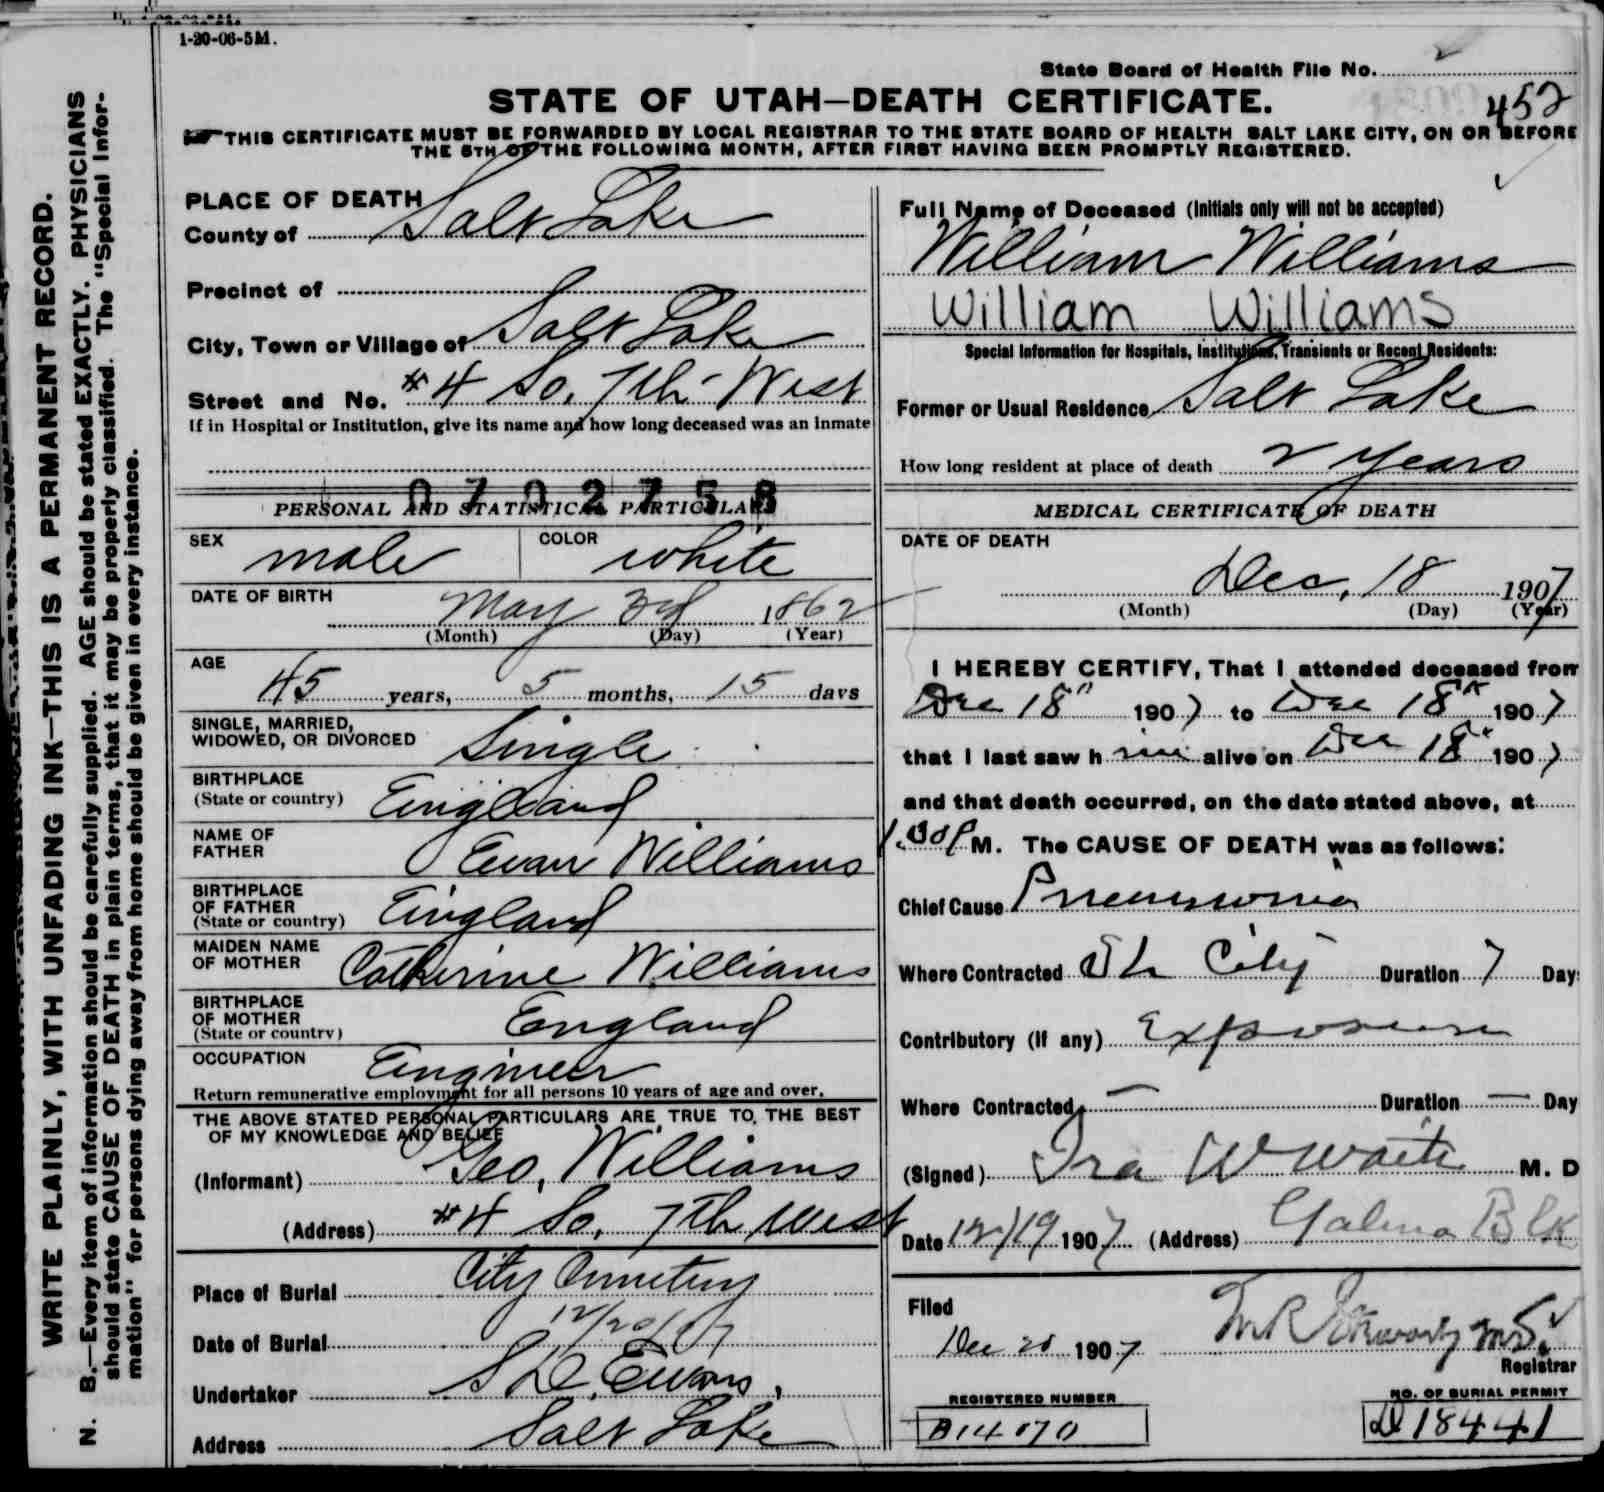 1-20-06-5M.
State Board of Health File No.
452
STATE OF UTAH—DEATH CERTIFICATE.
THIS CERTIFICATE MUST BE FORWARDED BY LOCAL REGISTRAR TO THE STATE BOARD OF HEALTH SALT LAKE CITY, ON OR BEFORE
THE 5TH OF THE FOLLOWING MONTH, AFTER FIRST HAVING BEEN PROMPTLY REGISTERED.
WRITE PLAINLY, WITH UNFADING INK—THIS IS A PERMANENT RECORD.
N. B.—Every item of information should be carefully supplied. AGE should be stated EXACTLY. PHYSICIANS
should state CAUSE OF DEATH in plain terms, that it may be properly classified. The "Special Infor-
mation" for persons dying away from home should be given in every instance.
PLACE OF DEATH
County of Salt Lake
Precinct of
City, Town or Village of Salt Lake
Street and No. #4 So. 7th West
If in Hospital or Institution, give its name and how long deceased was an inmate
0702758
PERSONAL AND STATISTICAL PARTICULARS
SEX male COLOR white
DATE OF BIRTH May 3d 1862
(Month) (Day) (Year)
AGE 45 years, 5 months, 15 days
SINGLE, MARRIED,
WIDOWED, OR DIVORCED Single
BIRTHPLACE
(State or country) England
NAME OF
FATHER Evan Williams
BIRTHPLACE
OF FATHER
(State or country) England
MAIDEN NAME
OF MOTHER Catherine Williams
BIRTHPLACE
OF MOTHER
(State or country) England
OCCUPATION Engineer
Return remunerative employment for all persons 10 years of age and over.
THE ABOVE STATED PERSONAL PARTICULARS ARE TRUE TO THE BEST
OF MY KNOWLEDGE AND BELIEF
(Informant) Geo. Williams
(Address) #4 So. 7th West
Place of Burial City Cemetery
Date of Burial 12/20/07
Undertaker S D. Evans,
Address Salt Lake
Full Name of Deceased (Initials only will not be accepted)
William Williams
William Williams
Special Information for Hospitals, Institutions, Transients or Recent Residents:
Former or Usual Residence Salt Lake
How long resident at place of death 2 years
MEDICAL CERTIFICATE OF DEATH
DATE OF DEATH
Dec, 18 1907
(Month) (Day) (Year)
I HEREBY CERTIFY, That I attended deceased from
Dec 18" 1907 to Dec 18th 1907
that I last saw him alive on Dec 18" 1907
and that death occurred, on the date stated above, at
M. The CAUSE OF DEATH was as follows:
Chief Cause Pneumonia
Where Contracted S L City Duration 7 Day
Contributory (If any) Exposure
Where Contracted — Duration — Day
(Signed) Ira W Waite M. D
Date 12/19 1907 (Address) Galena Blk
Filed
Dec 20 1907 M.D.
Registrar
REGISTERED NUMBER
B14070
NO. OF BURIAL PERMIT
D18441